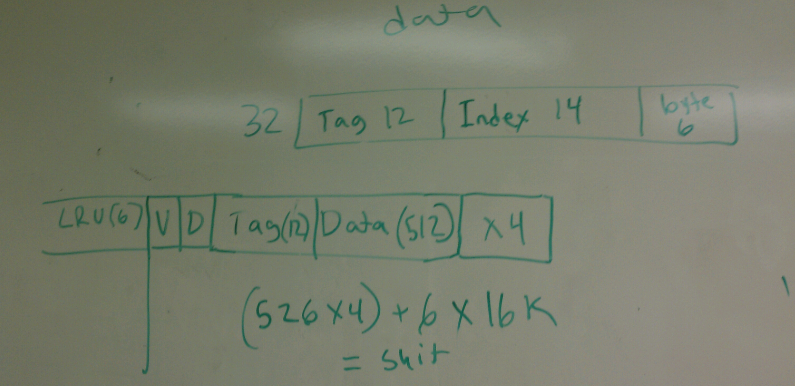 data
32 Tag 12 Index 14 byte 6
LRU(6) V D Tag(12) Data(512) x4
(526x4) + 6 x 16K
= shit